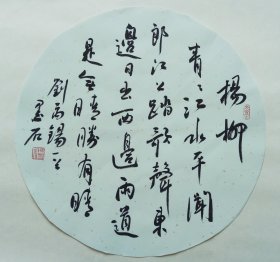 楊柳
青々江水平聞
郎江上踏歌聲東
邊日出西邊雨道
是無晴勝有晴
劉禹錫
墨石